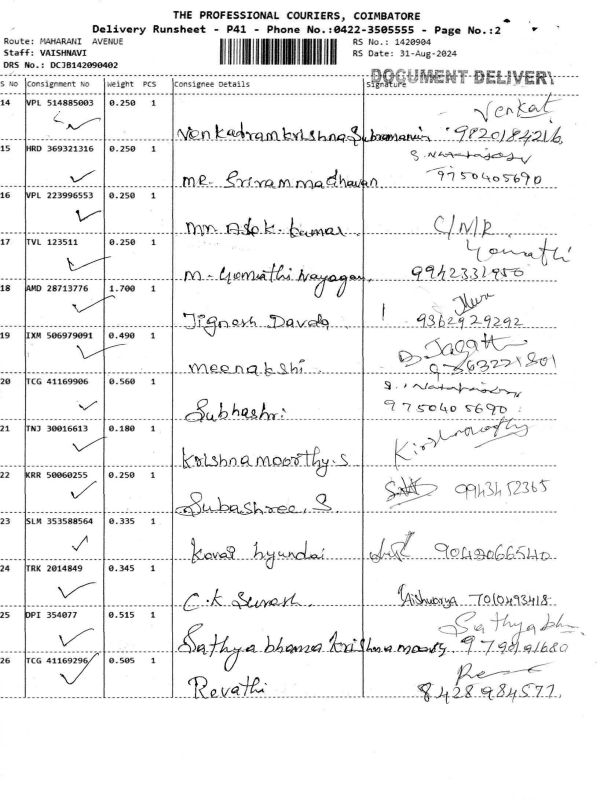 THE PROFESSIONAL COURIERS, COIMBATORE
Delivery Runsheet - P41 - Phone No.:0422-3505555 - Page No.:2
Route: MAHARANI AVENUE RS No.: 1420904
Staff: VAISHNAVI RS Date: 31-Aug-2024
DRS No.: DCJB142090402
DOCUMENT DELIVERY
S No Consignment No Weight PCS Consignee Details Signature
14 VPL 514885003 0.250 1 Venkat
Venkadramkrishna Subramanin 9820184216
15 HRD 369321316 0.250 1
mr. Srirammadhavan 9750405690
16 VPL 223996553 0.250 1
mr. Asok. kumar C/M/R
17 TVL 123511 0.250 1 Gomathi
m. Gomathi Nayagan 9942331950
18 AMD 28713776 1.700 1
Jignesh Davda 9362929292
19 IXM 506979091 0.490 1
meenakshi
20 TCG 41169906 0.560 1
Subhashri 9750405690
21 TNJ 30016613 0.180 1
Krishnamoorthy.S
22 KRR 50060255 0.250 1
Subashree. S. 9943452365
23 SLM 353588564 0.335 1
Kovai hyundai 9042066540
24 TRK 2014849 0.345 1
C.K Suresh. Aishwarya 7010493418
25 DPI 354077 0.515 1 Sathyabh
Sathyabhama krishnamoorthy
26 TCG 41169296 0.505 1
Revathi 8428984577